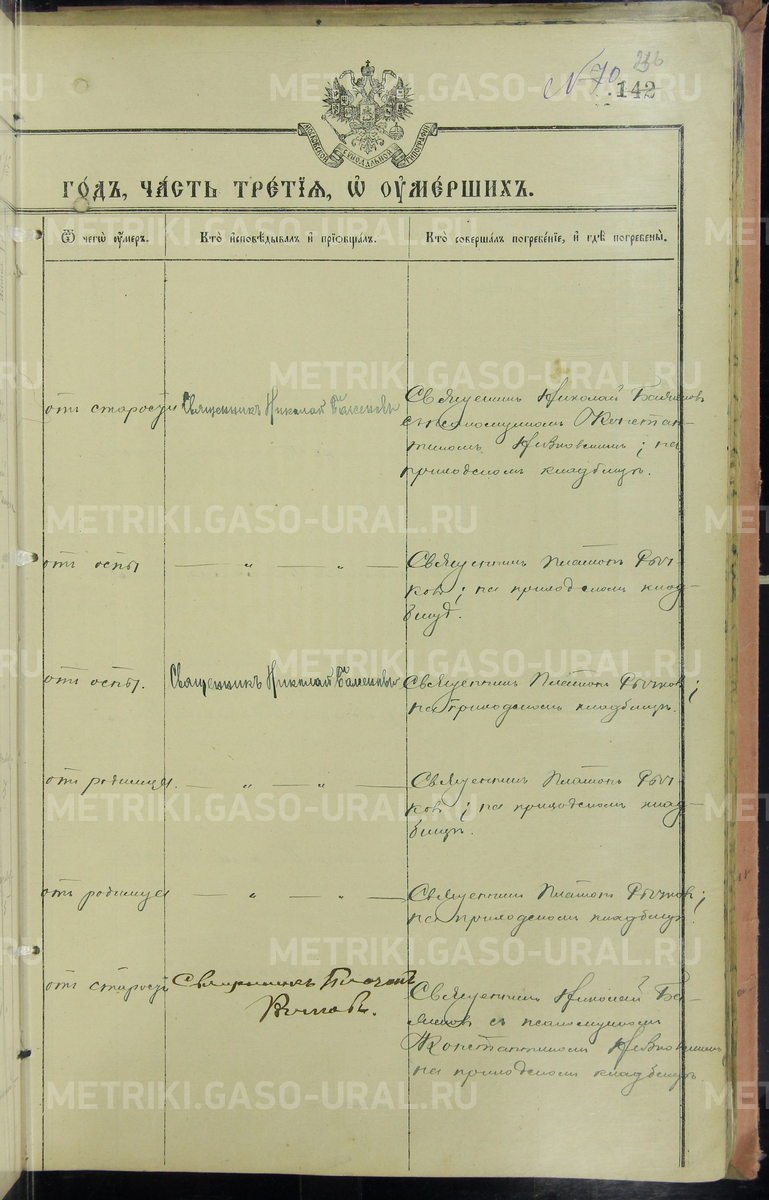 236
N 70
142
МОСКОВСКОЙ СѴНОДАЛЬНОЙ ТИПОГРАФІИ
ГО́ДЪ, ЧА́СТЬ ТРЕ́ТІѦ, Ѡ҆ ОУ҆МЕ́РШИХЪ.
Ѿ чегѡ̀ оу҆́меръ.
Кто̀ и҆сповѣ́дывалъ и҆ приѻбща́лъ.
Кто̀ соверша́лъ погребе́нїе, и҆ гдѣ̀ погребены̀.
отъ старости
Священникъ Николай
Священникъ Николай
съ псаломщикомъ Констан-
тиномъ ; на
приходскомъ кладбищѣ.
отъ оспы
— „ — „ —
Священникъ Платонъ Рыч-
ковъ; на приходскомъ клад-
бищѣ.
отъ оспы.
Священникъ Николай
Священникъ Платонъ Рычковъ;
на приходскомъ кладбищѣ.
отъ родимца.
— „ — „ —
Священникъ Платонъ Рыч-
ковъ; на приходскомъ клад-
бищѣ.
отъ родимца
— „ — „ —
Священникъ Платонъ Рычковъ;
на приходскомъ кладбищѣ.
отъ старости
Священникъ Платонъ
Рычковъ.
Священникъ Николай
съ псаломщикомъ
Константиномъ
на приходскомъ кладбищѣ
METRIKI.GASO-URAL.RU